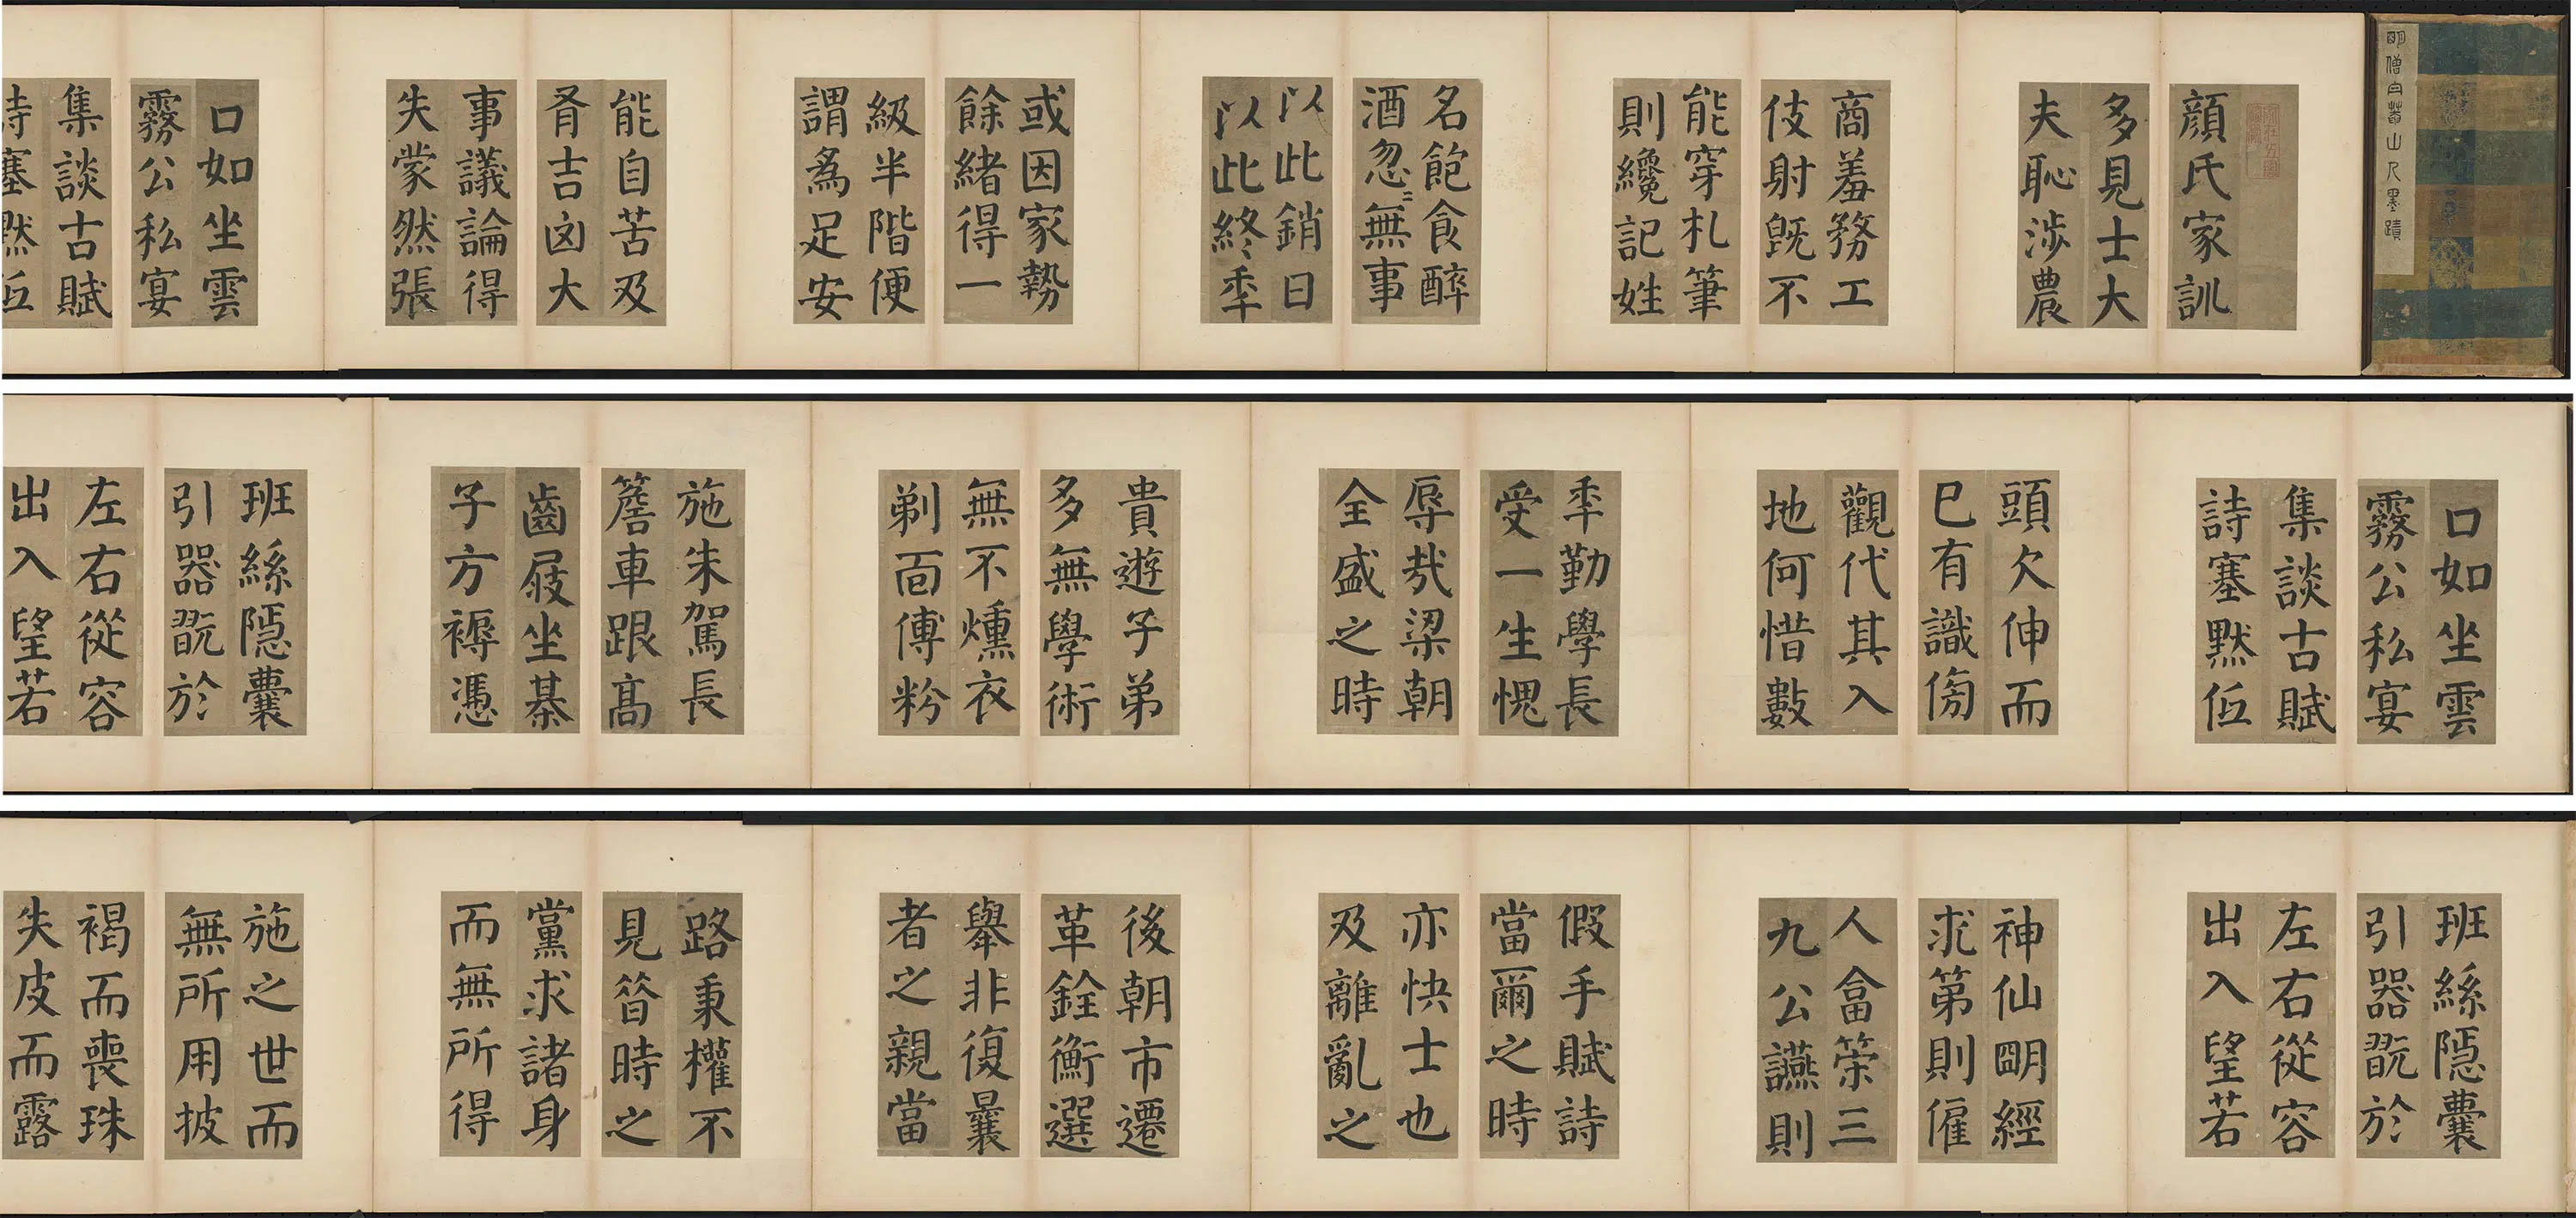 明僧白山人墨蹟
顔氏家訓
多見士大
夫恥涉農
商羞務工
伎射既不
能穿札筆
則纔記姓
名飽食醉
酒忽〻無事
以此銷日
以此終秊
或因家勢
餘緒得一
級半階便
謂爲足安
能自苦及
有吉凶大
事議論得
失蒙然張
口如坐雲
霧公私宴
集談古賦
詩塞黙低
口如坐雲
霧公私宴
集談古賦
詩塞黙低
頭欠伸而
巳有識傍
觀代其入
地何惜數
秊勤學長
受一生愧
辱哉梁朝
全盛之時
貴遊子弟
多無學術
無不燻衣
剃面傅粉
施朱駕長
簷車跟髙
齒屐坐棊
子方褥憑
班絲隱囊
引器翫於
左右從容
出入望若
班絲隱囊
引器翫於
左右從容
出入望若
神仙明經
求第則僱
人畣策三
九公讌則
假手賦詩
當爾之時
亦快士也
及離亂之
後朝市遷
革銓衡選
舉非復曩
者之親當
路秉權不
見昔時之
黨求諸身
而無所得
施之世而
無所用披
褐而喪珠
失皮而露